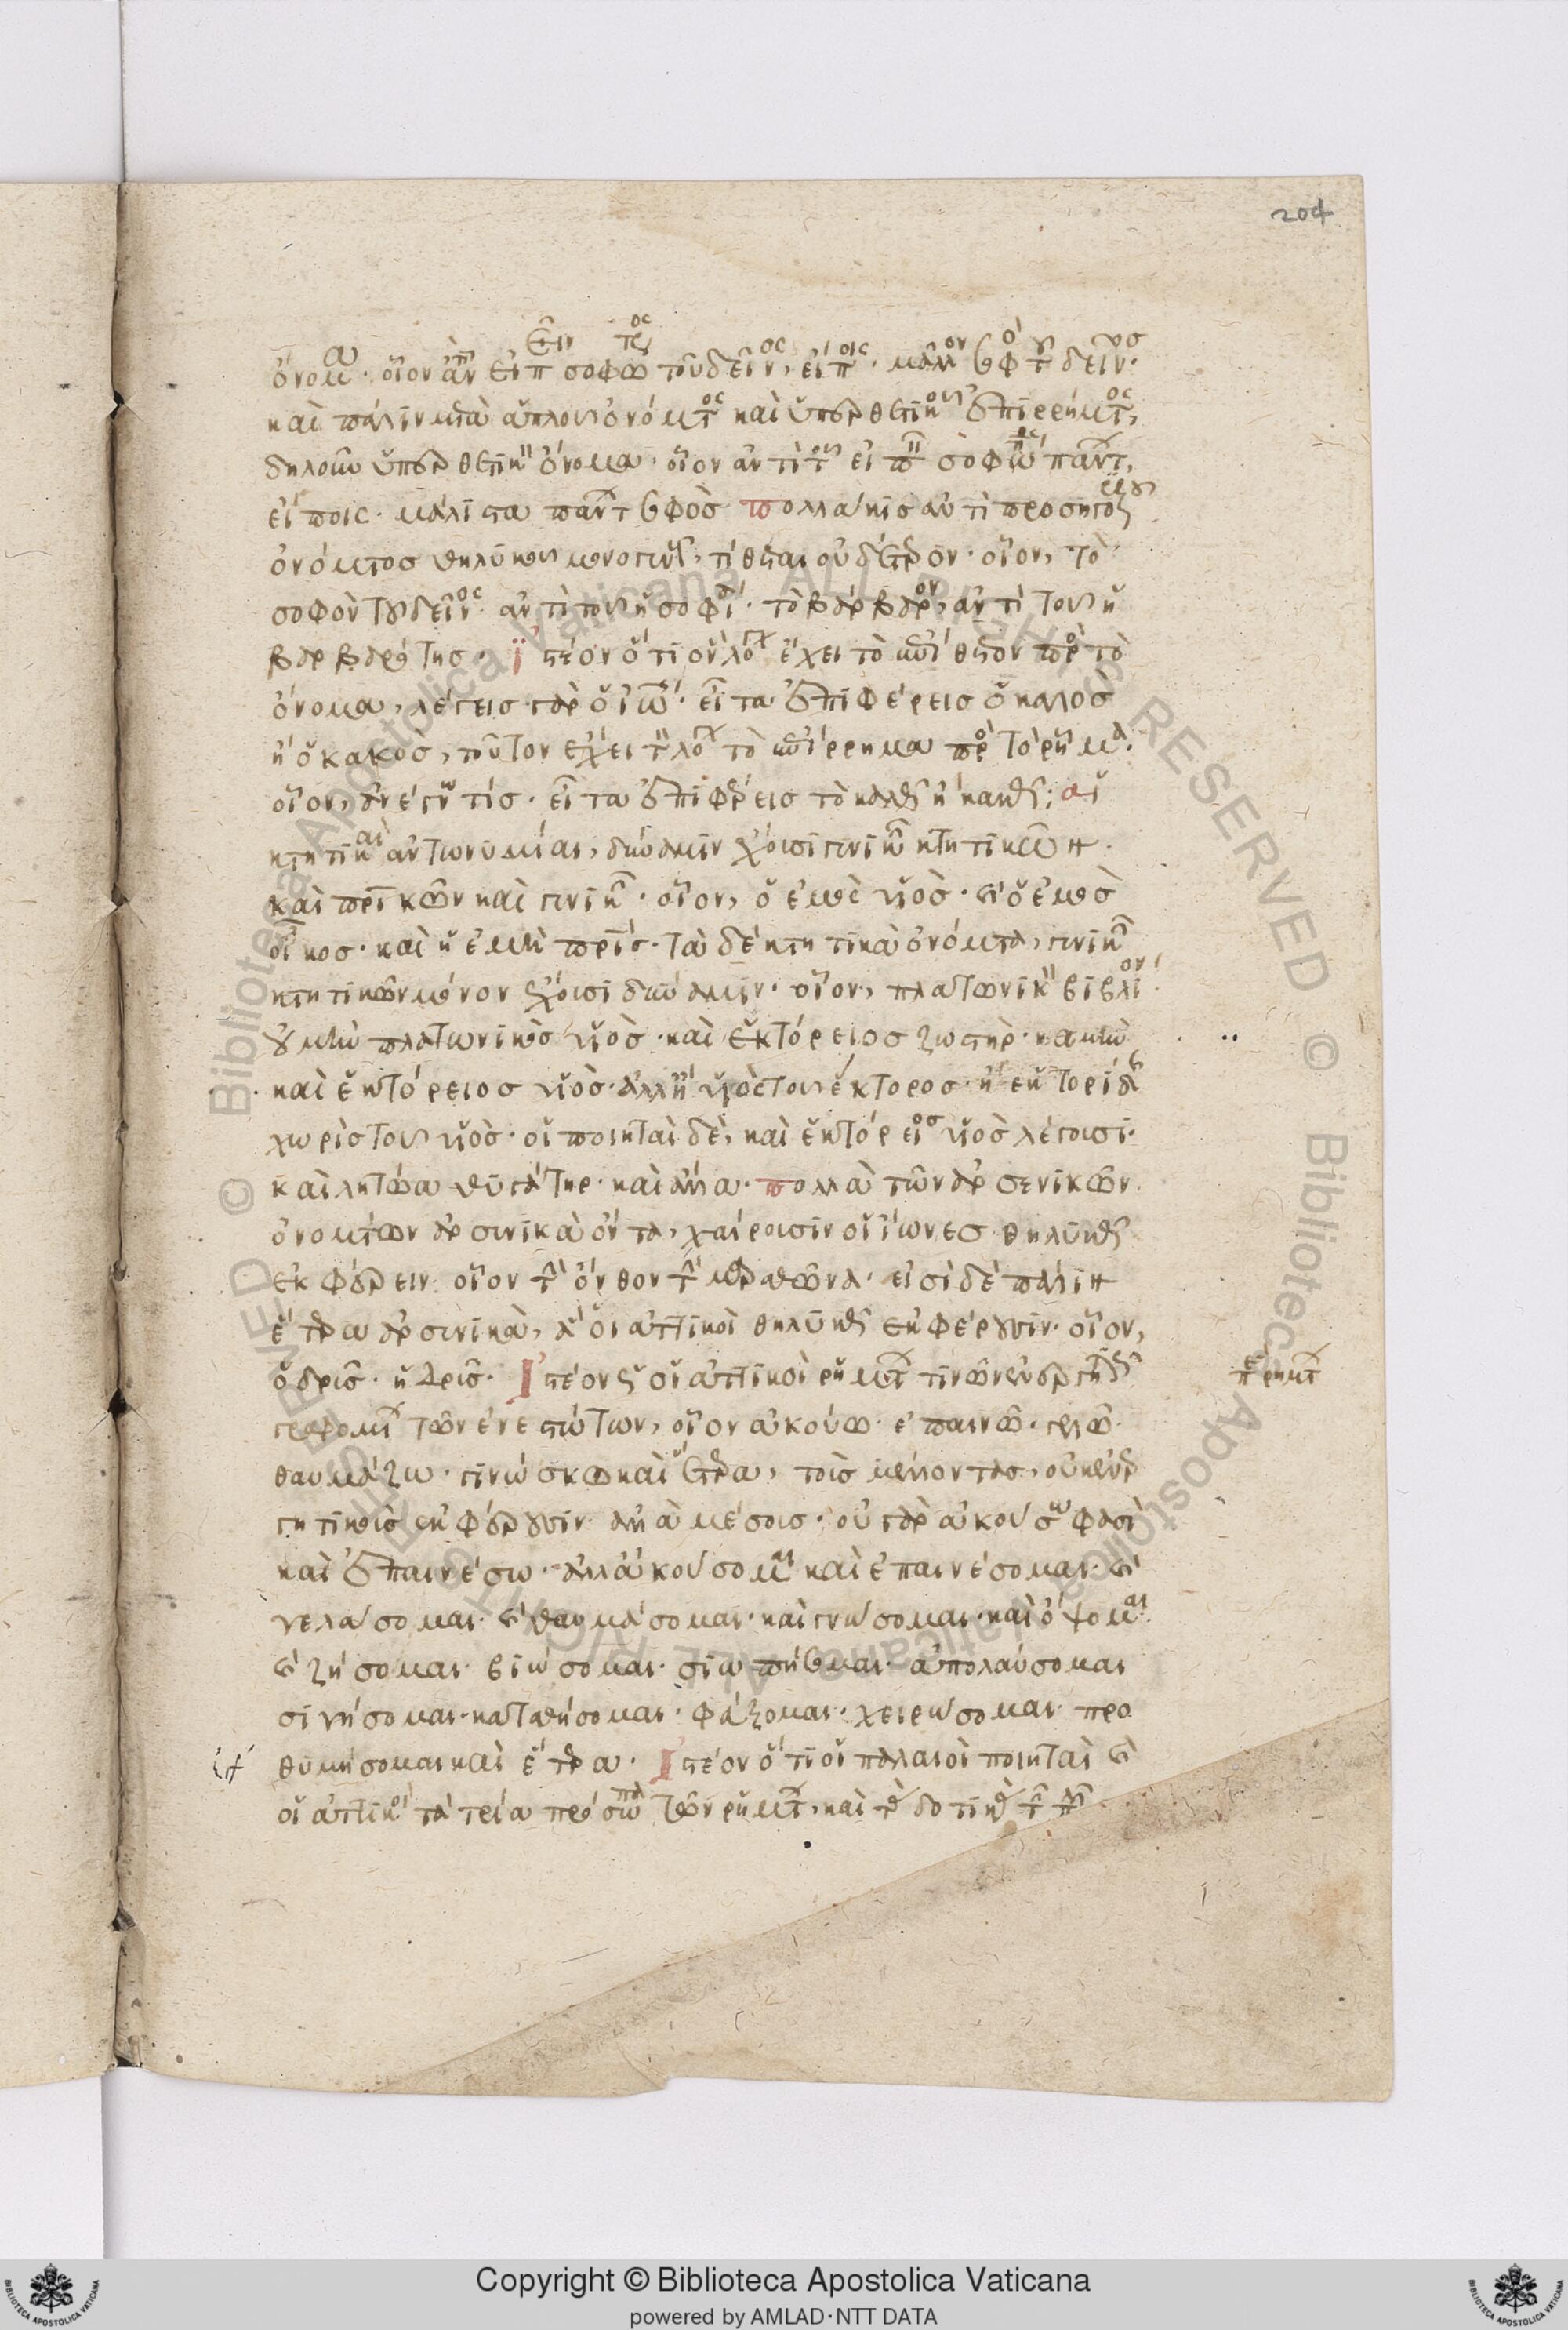 204
ὄνομα· οἷον ἀντὶ εἰπεῖν σοφώτερος τοῦ δεῖνος, εἴποις· μᾶλλον σοφὸς τοῦ δεῖνος·
καὶ πάλιν μετὰ ἁπλοῦ ὀνόματος καὶ ὑπερθετικοῦ ἐπιρρήματος,
δηλοῦν ὑπερθετικὸν ὄνομα· οἷον ἀντὶ τοῦ εἰπεῖν σοφώτατος πάντων,
εἴποις· μάλιστα πάντων σοφὸς πολλάκις ἀντὶ προσηγορικοῦ
ὀνόματος θηλυκοῦ μονογενοῦς, τίθεται οὐδέτερον· οἷον, τὸ
σοφὸν τοῦ δεῖνος· ἀντὶ τοῦ ἡ σοφία· τὸ βάρβαρον, ἀντὶ τοῦ ἡ
βαρβαρότης· ἰστέον ὅτι ὃν λόγον ἔχει τὸ ἐπίθετον πρὸς τὸ
ὄνομα, λέγεις γὰρ ὁ ἰωάννης· εἶτα ἐπιφέρεις ὁ καλὸς
ἢ ὁ κακὸς, τοῦτον ἔχει τὸν λόγον τὸ ἐπίρρημα πρὸς τὸ ῥῆμα·
οἷον, ἀνέγνω τίς· εἶτα ἐπιφέρεις τὸ καλῶς ἢ κακῶς; αἱ
κτητικαὶ ἀντωνυμίαι, δύναμιν ἔχουσι γενικῶν κτητικῶν
καὶ πατρικῶν καὶ γενικῶν· οἷον, ὁ ἐμὸς υἱὸς· καὶ ὁ ἐμὸς
οἶκος· καὶ ἡ ἐμὴ πατρίς· τὰ δὲ κτητικὰ ὀνόματα, γενικῶν
κτητικῶν μόνον ἔχουσι δύναμιν· οἷον, πλατωνικὸν βιβλίον
οὐ μὴν πλατωνικὸς υἱὸς· καὶ ἑκτόρειος ζωστὴρ·
καὶ ἑκτόρειος υἱὸς· ἀλλ' ἢ υἱὸς τοῦ ἕκτορος· ἢ ἑκτορίδης
χωρὶς τοῦ υἱὸς· οἱ ποιηταὶ δὲ, καὶ ἑκτόρειος υἱὸς λέγουσι·
καὶ λητῴα θυγάτηρ· καὶ ἄλλα· πολλὰ τῶν ἀρσενικῶν
ὀνομάτων ἀρσενικὰ ὄντα, χαίρουσιν οἱ ἴωνες θηλυκῶς
ἐκφέρειν· οἷον τὴν ὄνθον τὴν μαραθῶνα· εἰσὶ δὲ πάλιν
ἕτερα ἀρσενικὰ, ἃ οἱ ἀττικοὶ θηλυκῶς ἐκφέρουσιν· οἷον,
Ἰστέον ὅτι οἱ ἀττικοὶ ῥημάτων τινῶν ἐνεργητικῶς
περὶ ῥημάτων
γραφομένων τῶν ἐνεστώτων, οἷον ἀκούω· ἐπαινῶ· γελῶ·
θαυμάζω· γινώσκω καὶ ἕτερα, τοὺς μέλλοντας, οὐκ ἐνερ
γητικοὺς ἐκφέρουσιν ἀλλὰ μέσους· οὐ γὰρ ἀκούσω φασὶ
καὶ ἐπαινέσω· ἀλλ' ἀκούσομαι καὶ ἐπαινέσομαι· καὶ
γελάσομαι· καὶ θαυμάσομαι· καὶ γνώσομαι· καὶ ὄψομαι
καὶ ζήσομαι· βιώσομαι· σιωπήσομαι· ἀπολαύσομαι
σιγήσομαι· φάξομαι· χειρώσομαι· προ
θυμήσομαι καὶ ἕτερα· Ἰστέον ὅτι οἱ παλαιοὶ ποιηταὶ καὶ
οἱ ἀττικοὶ τὰ τρία πρόσωπα τῶν ῥημάτων, καὶ
Copyright © Biblioteca Apostolica Vaticana
powered by AMLAD·NTT DATA